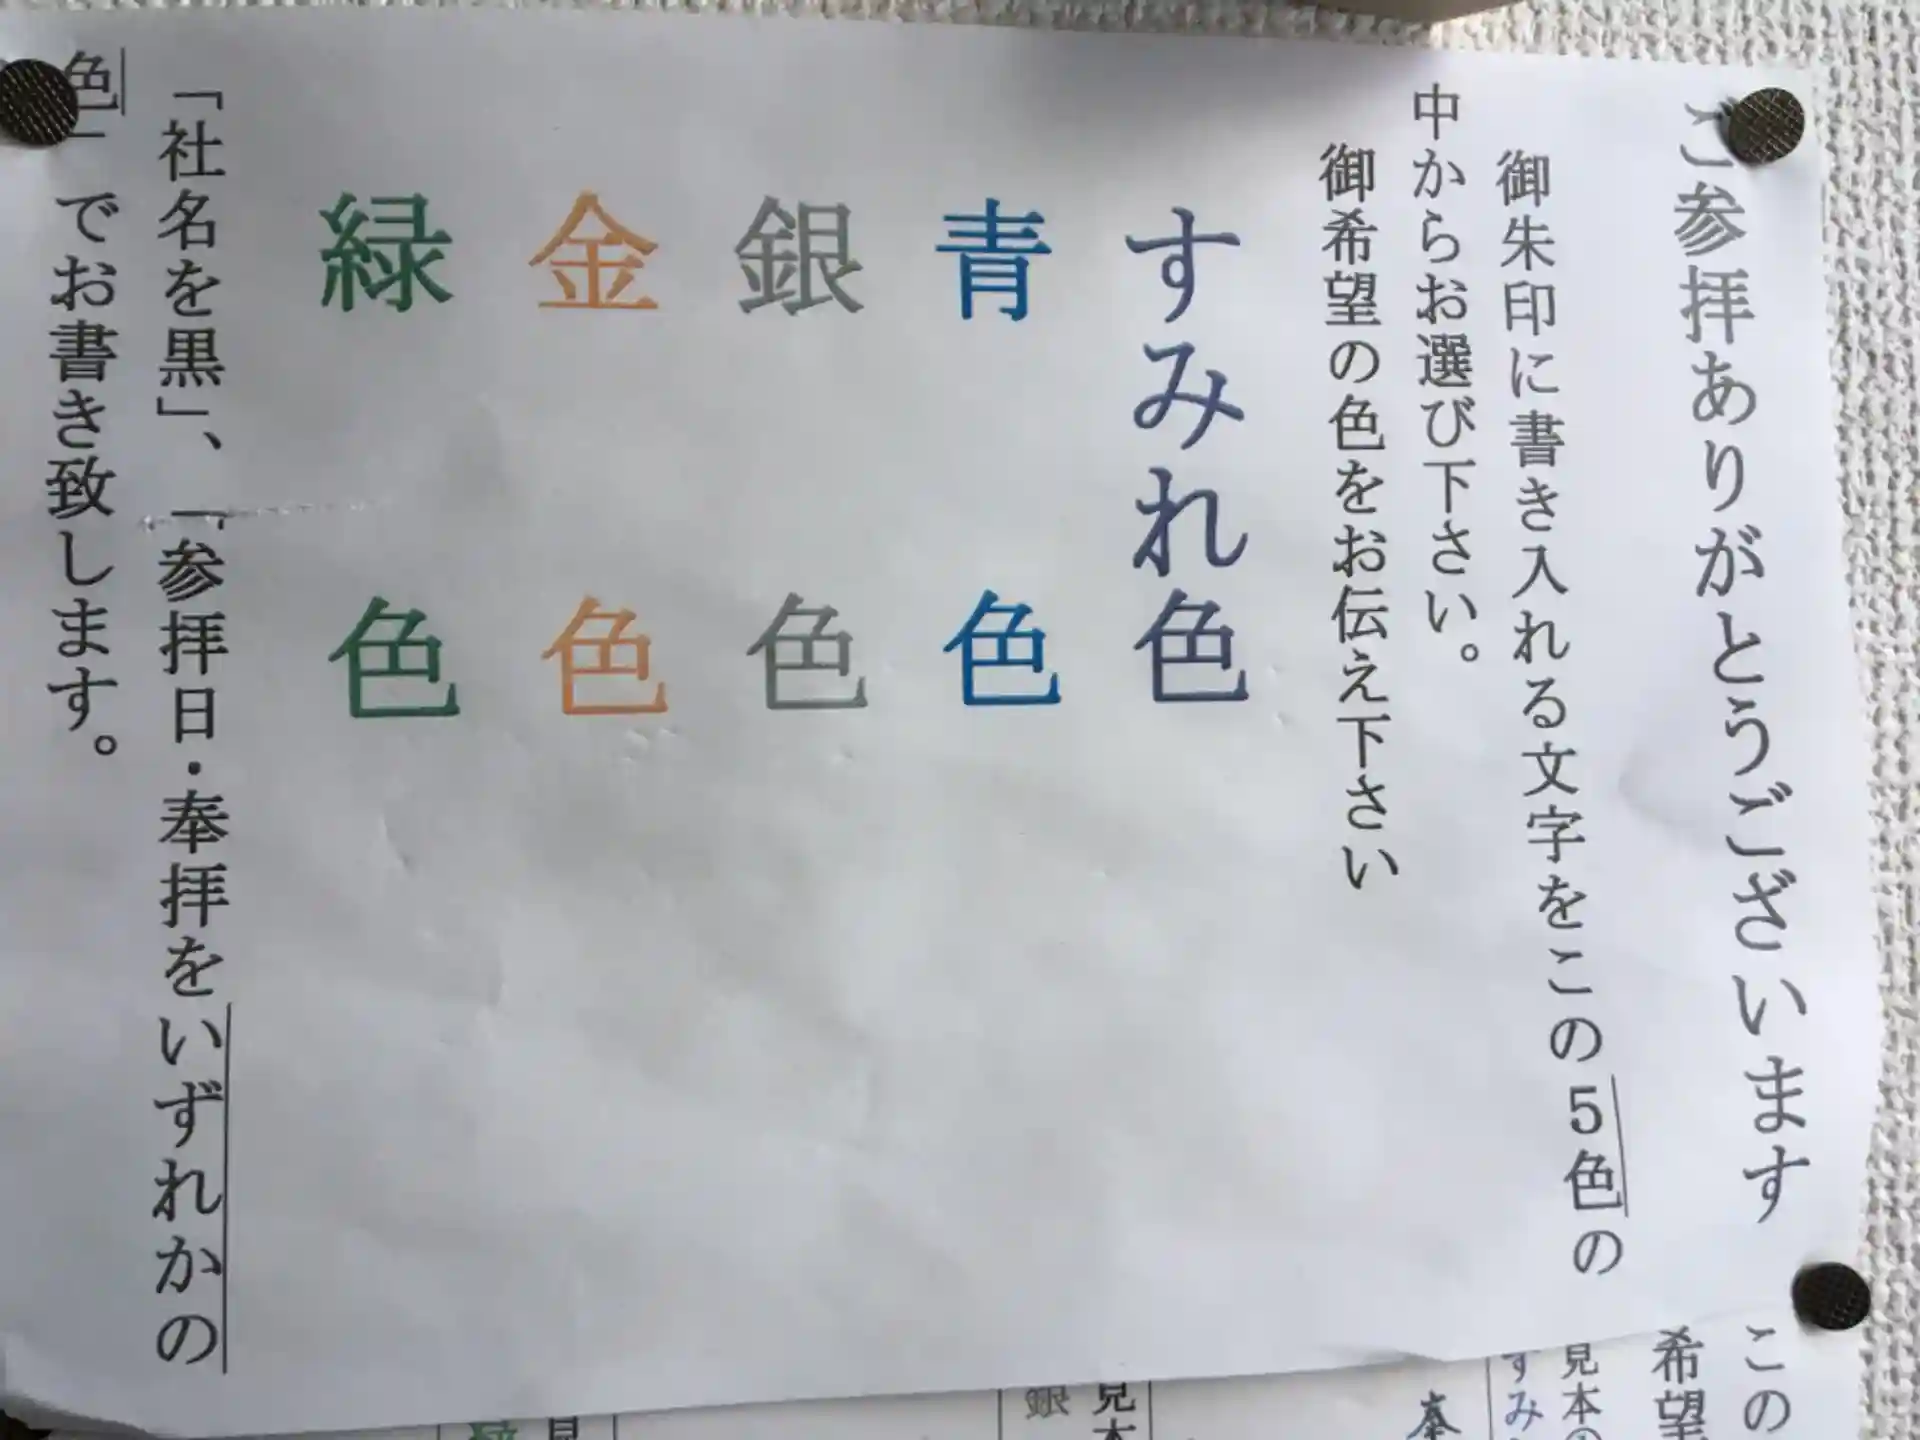 ご参拝ありがとうございます
御朱印に書き入れる文字をこの5色の
中からお選び下さい。
御希望の色をお伝え下さい
すみれ色
青色
銀色
金色
緑色
「社名を黒」、「参拝日・奉拝をいずれかの
色」でお書き致します。
この
希望
見本
すみ
奉
見本
銀
見
緑